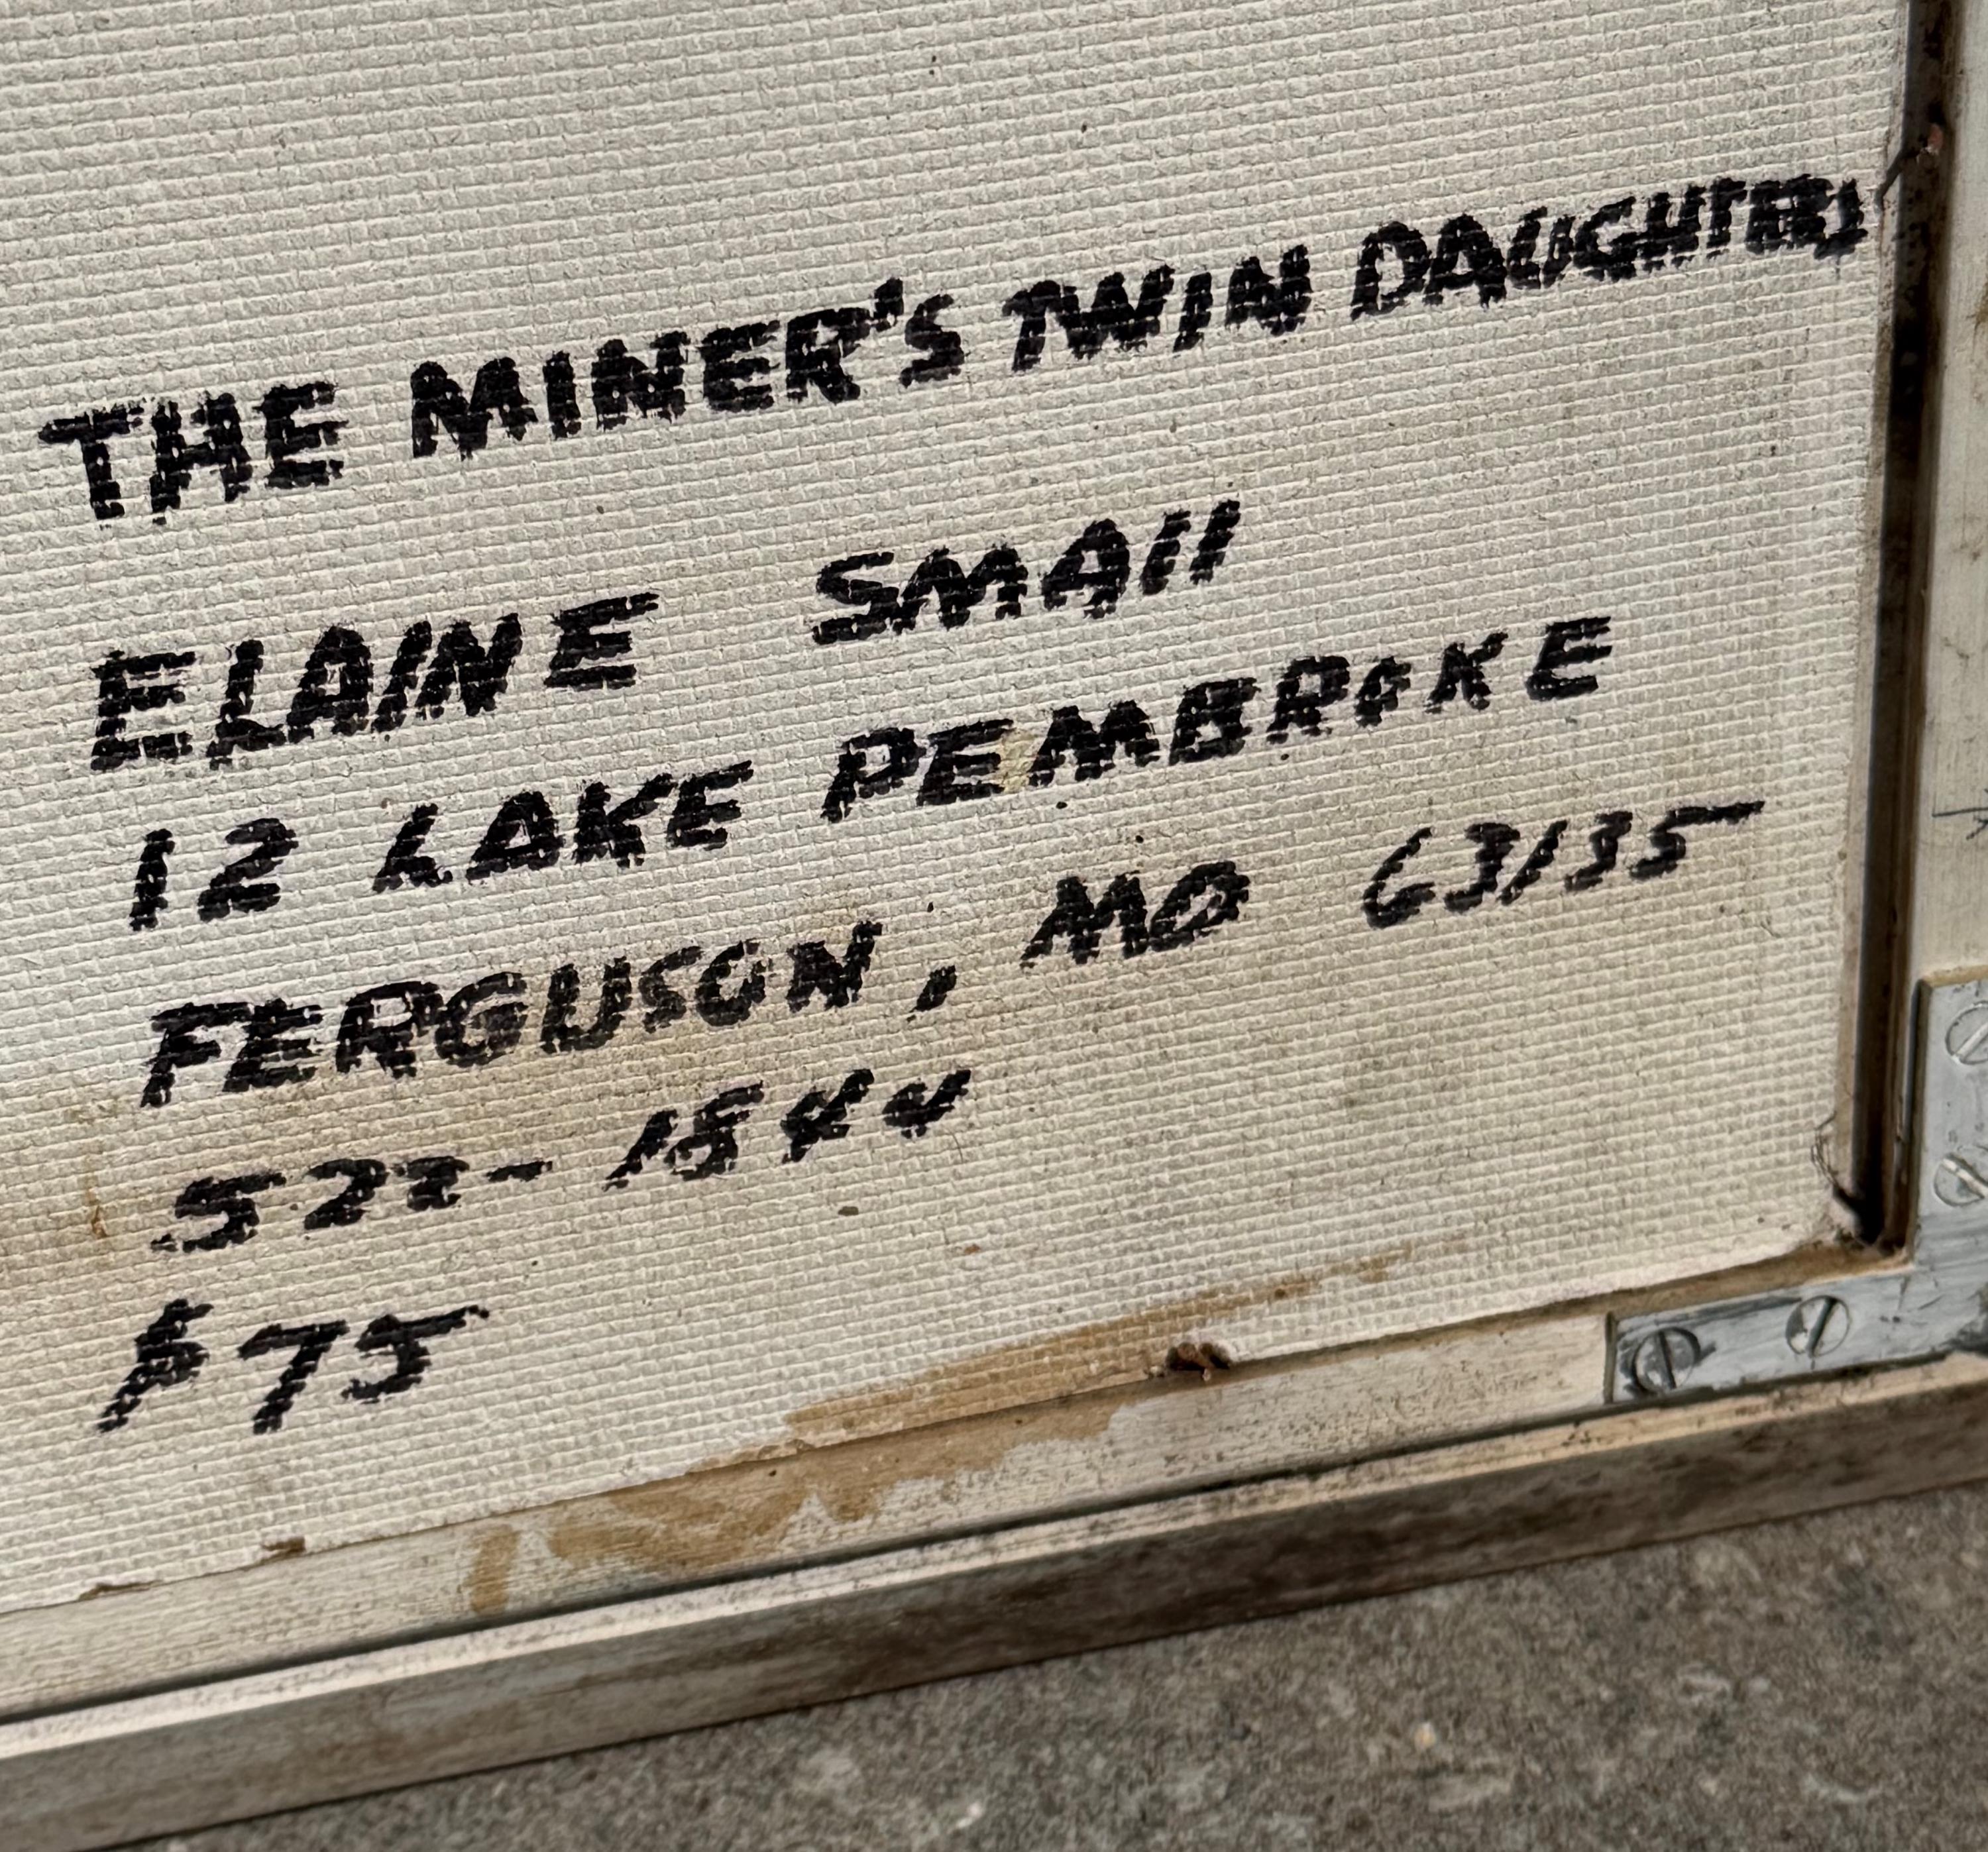 THE MINER'S TWIN DAUGHTERS
ELAINE SMAll
12 LAKE PEMBROKE
FERGUSON, MO 63135
522-1844
$75